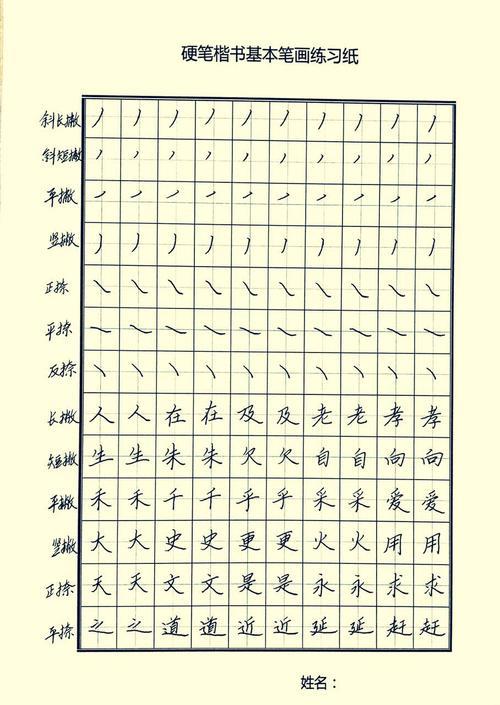 硬笔楷书基本笔画练习纸
斜长撇 丿 丿 丿 丿 丿 丿 丿 丿 丿 丿
斜短撇 丿 丿 丿 丿 丿 丿 丿 丿 丿 丿
平撇 丿 丿 丿 丿 丿 丿 丿 丿 丿 丿
竖撇 丿 丿 丿 丿 丿 丿 丿 丿 丿 丿
正捺 ㇏ ㇏ ㇏ ㇏ ㇏ ㇏ ㇏ ㇏ ㇏ ㇏
平捺 ㇏ ㇏ ㇏ ㇏ ㇏ ㇏ ㇏ ㇏ ㇏ ㇏
反捺 ㇏ ㇏ ㇏ ㇏ ㇏ ㇏ ㇏ ㇏ ㇏ ㇏
长撇 人 人 在 在 及 及 老 老 孝 孝
短撇 生 生 朱 朱 欠 欠 自 自 向 向
平撇 禾 禾 千 千 乎 乎 采 采 爱 爱
竖撇 大 大 史 史 更 更 火 火 用 用
正捺 天 天 文 文 是 是 永 永 求 求
平捺 之 之 道 道 近 近 延 延 赶 赶
姓名：